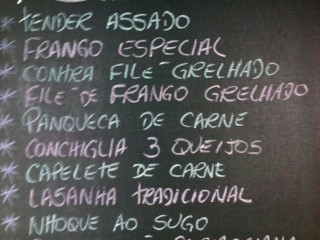 * TENDER ASSADO
* FRANGO ESPECIAL
* CONTRA FILÉ GRELHADO
* FILÉ DE FRANGO GRELHADO
* PANQUECA DE CARNE
* CONCHIGLIA 3 QUEIJOS
* CAPELETE DE CARNE
* LASANHA TRADICIONAL
* NHOQUE AO SUGO